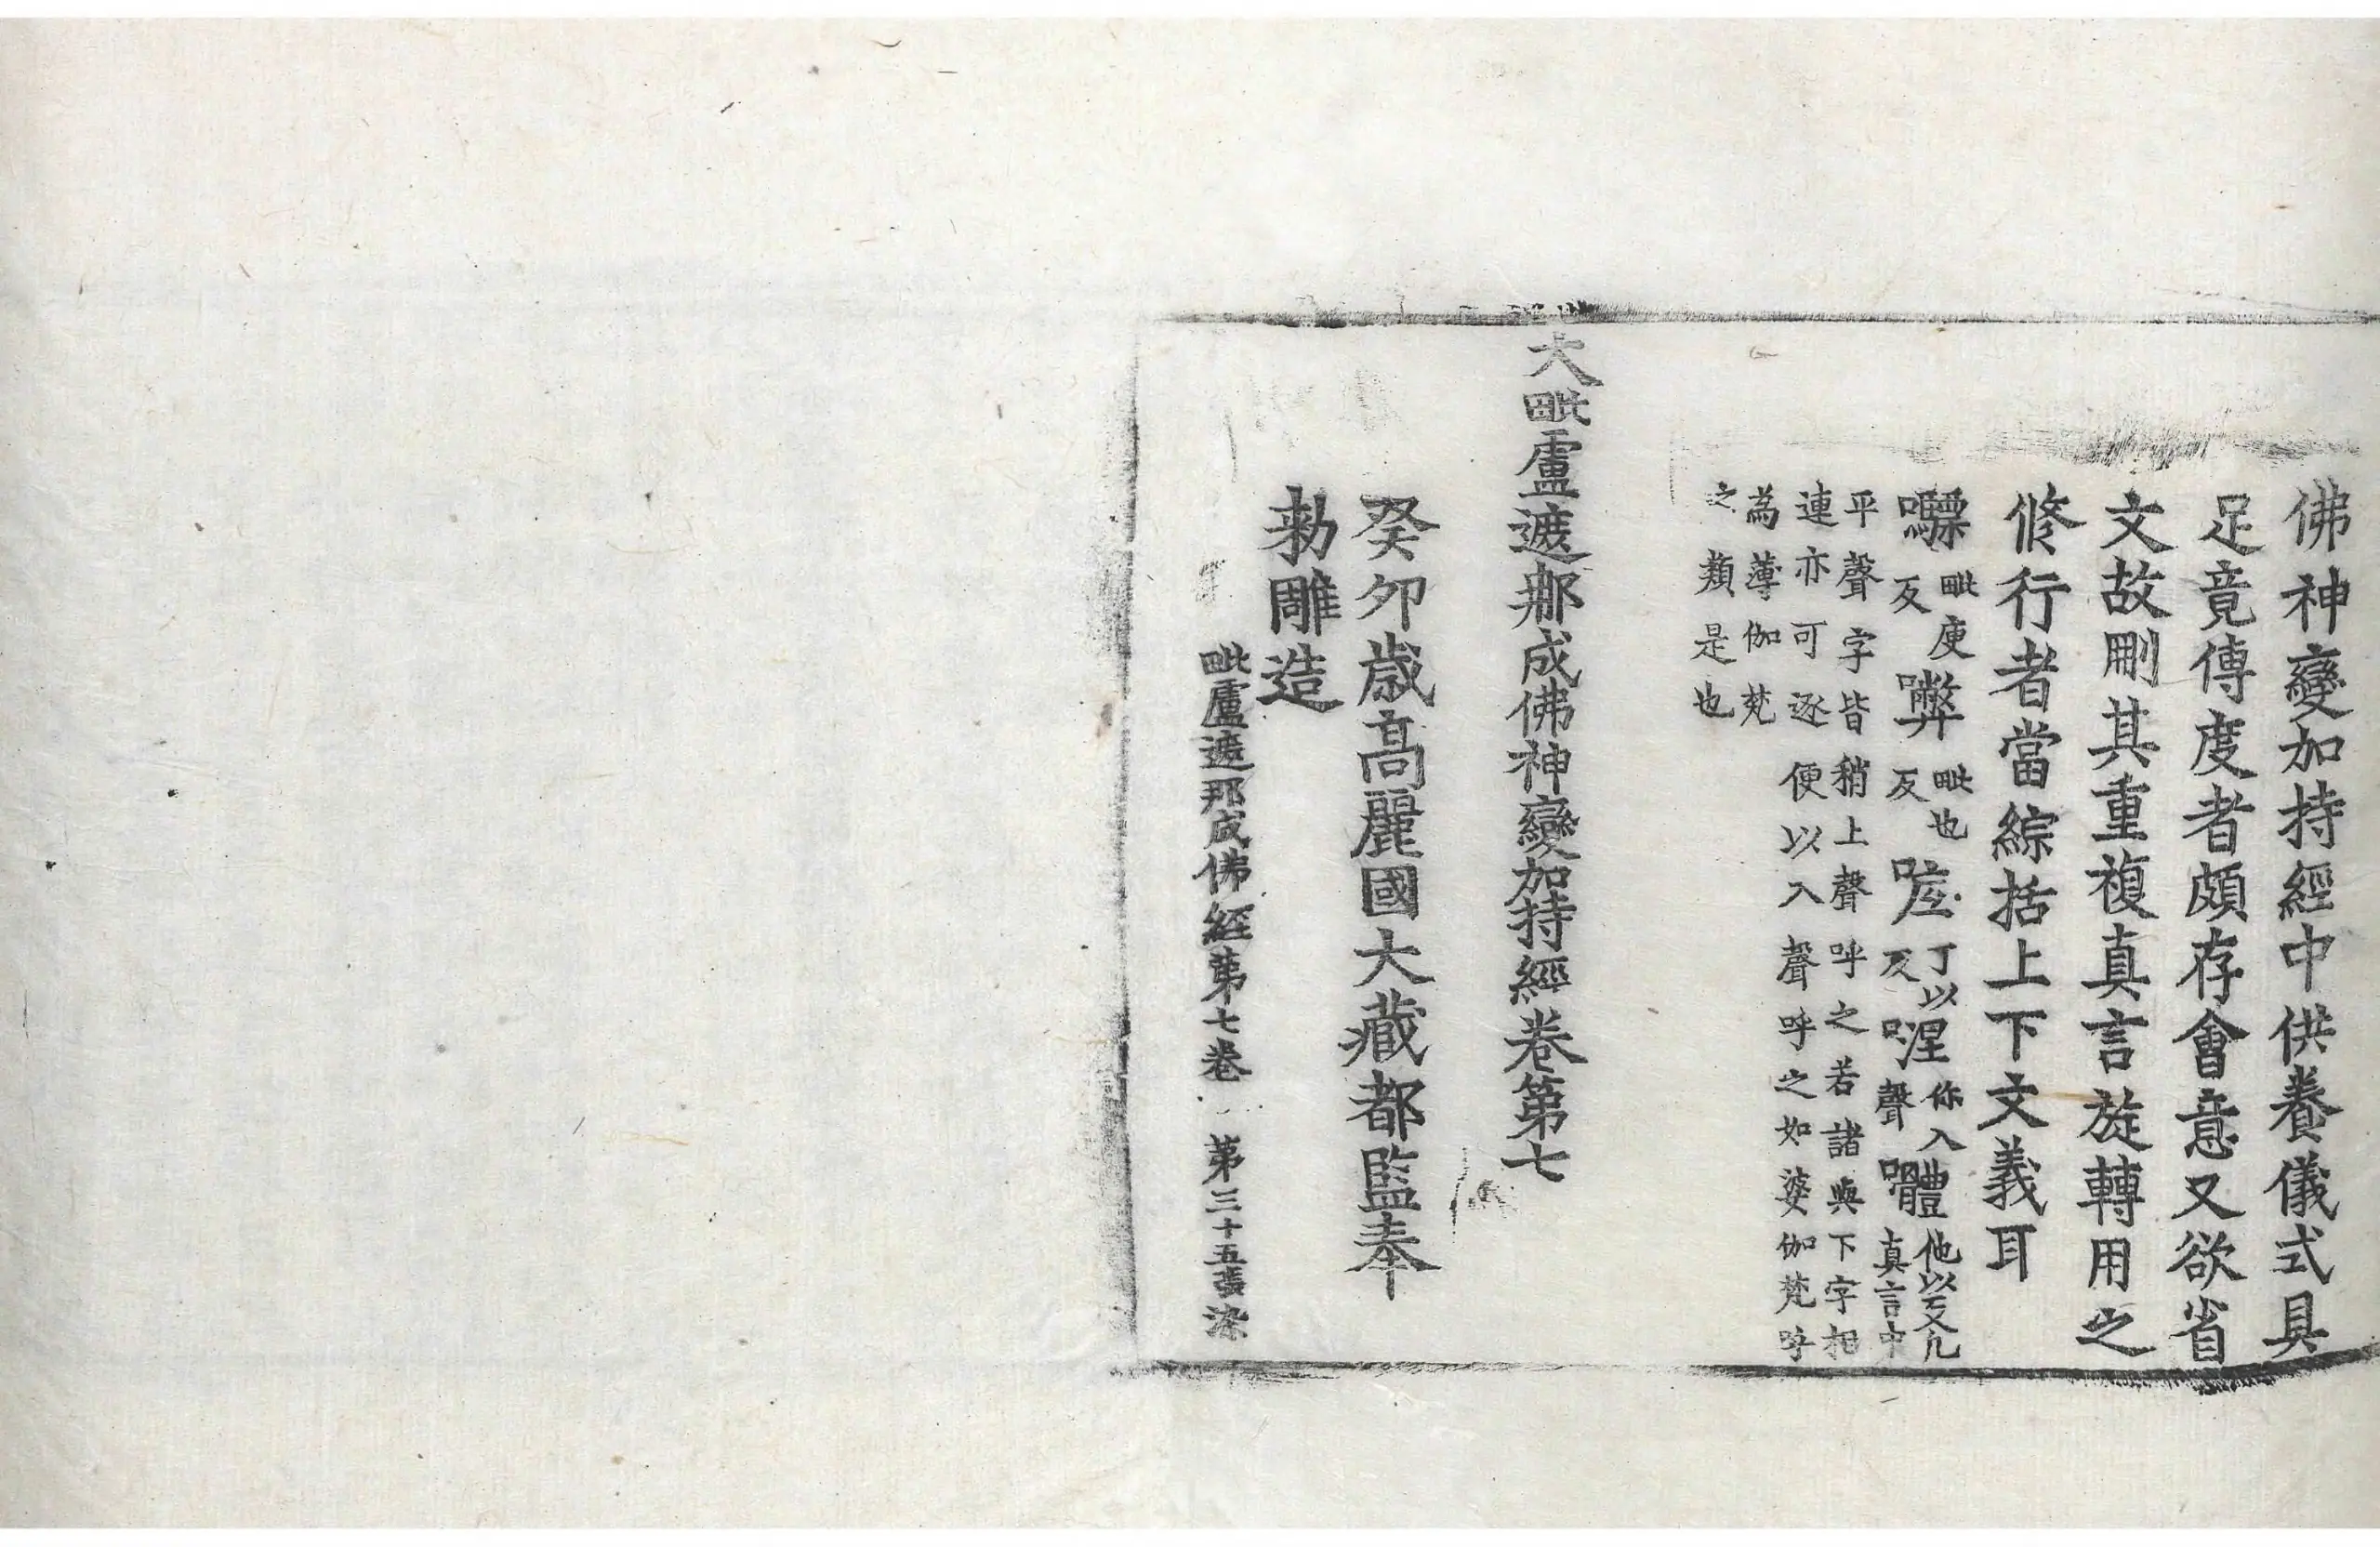 佛神變加持經中供養儀式具
足竟傳度者頗存會意又欲省
文故刪其重複真言旋轉用之
修行者當綜括上下文義耳
驃毗庾反弊毗也反㕔丁以反涅你入聲體他以反凡真言中
平聲字皆稍上聲呼之若諸與下字相
連亦可逐便以入聲呼之如婆伽梵呼
為薄伽梵
之類是也
大毗盧遮那成佛神變加持經卷第七
癸卯歲高麗國大藏都監奉
勅雕造
毗盧遮那成佛經第七卷 第三十五張 染